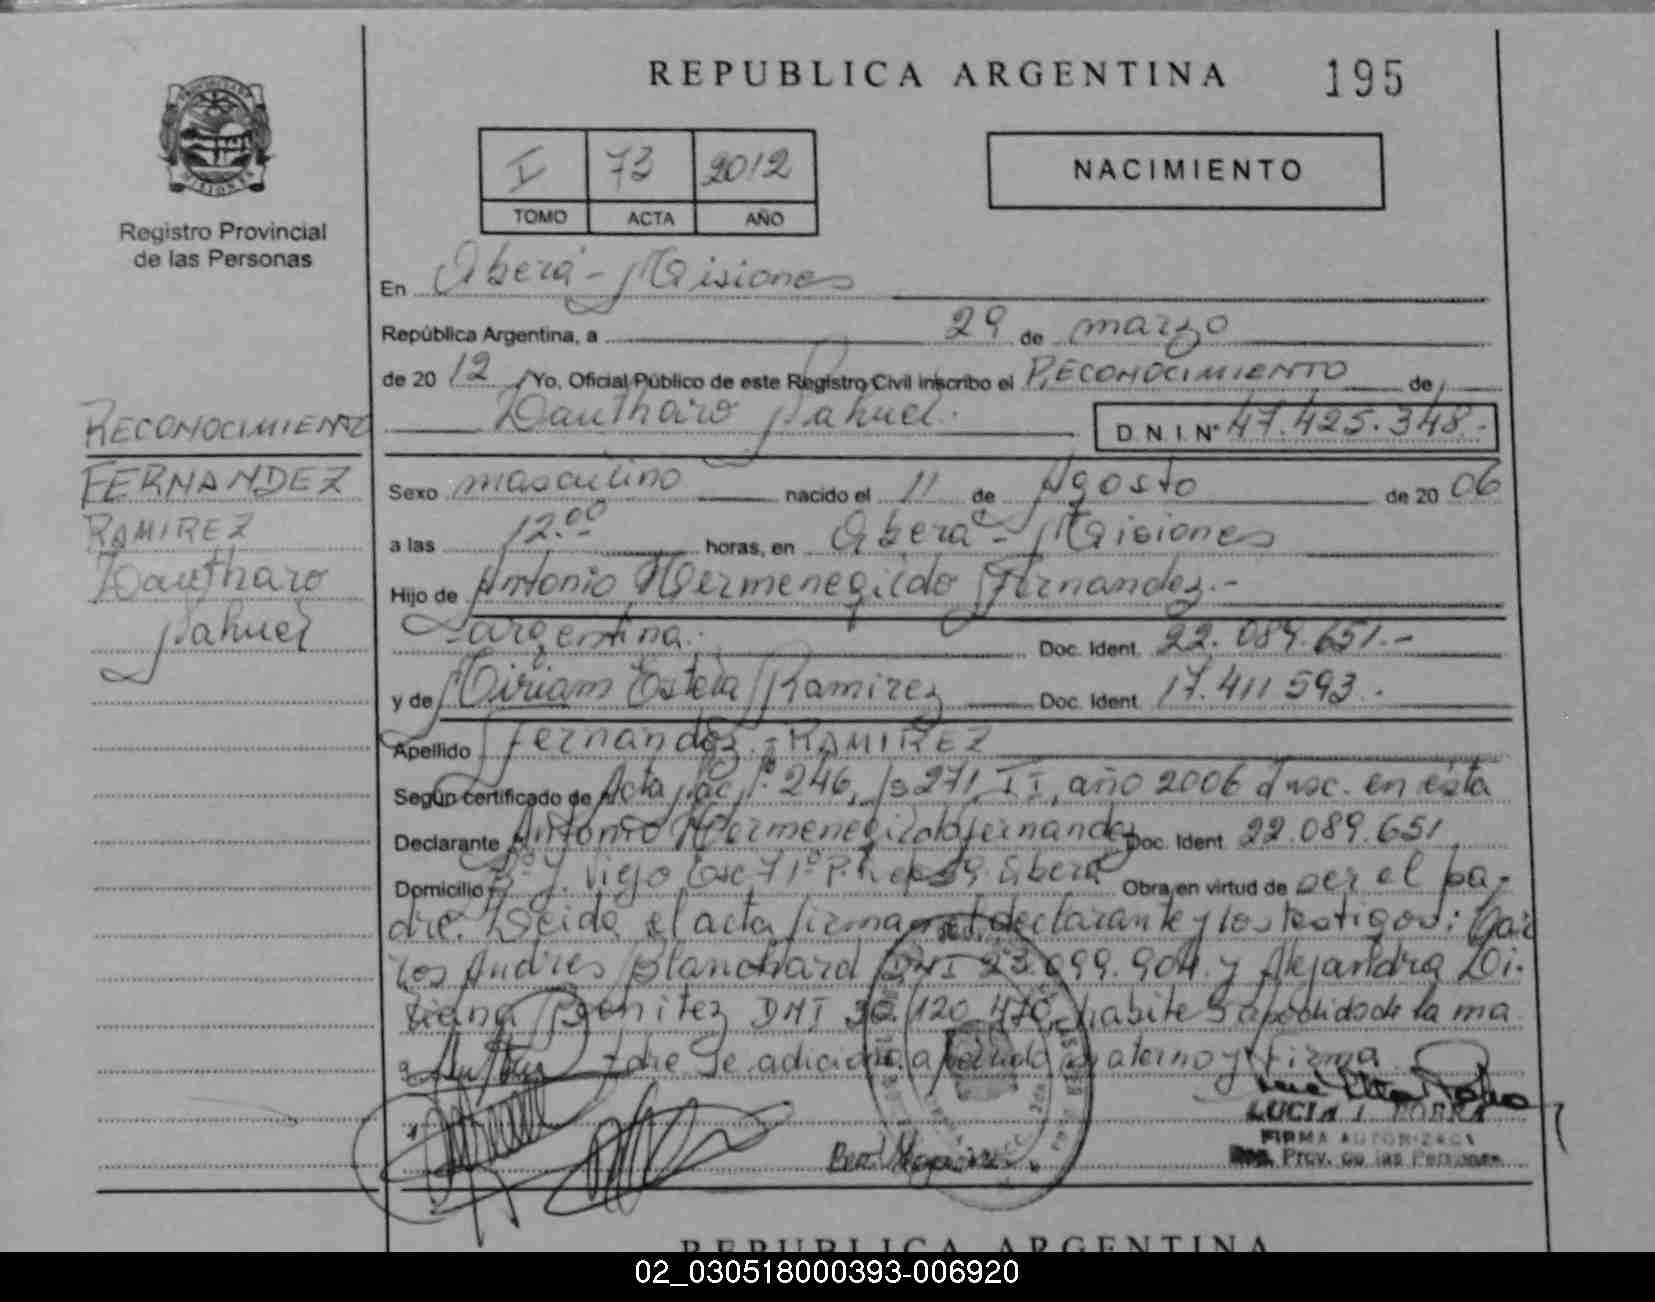 REPUBLICA ARGENTINA
195
I 73 2012
TOMO ACTA AÑO
NACIMIENTO
PROVINCIA DE MISIONES
Registro Provincial
de las Personas
En Oberá - Misiones
República Argentina, a 29 de marzo
de 20 12, Yo, Oficial Público de este Registro Civil inscribo el RECONOCIMIENTO de
Lautharo Nahuel.
D.N.I. Nº 47.425.348.-
RECONOCIMIENTO
FERNANDEZ
RAMIREZ
Lautharo
Nahuel
Sexo masculino nacido el 11 de Agosto de 20 06
a las 12.00 horas, en Oberá - Misiones
Hijo de Antonio Hermenegildo Fernandez.-
argentina. Doc. Ident. 22.089.651.-
y de Miriam Estela Ramirez Doc. Ident. 17.411 593.
Apellido Fernandez.- RAMIREZ
Según certificado de Acta Nac. Nº 246, Fs 271, T I, año 2006 Insc. en ésta
Declarante Antonio Hermenegildo Fernandez Doc. Ident. 22.089.651
Domicilio Viejo Oberá Obra en virtud de ser el pa-
dre. Leida el acta firman el declarante y los testigos: Car
los Andres Blanchard DNI 23.099.904. y Alejandra
Benitez DNI 120 470, apellido de la ma
dre Se adiciona apellido materno y Firma
LUCIA I.
FIRMA AUTORIZADA
Reg. Prov. de las Personas
REPUBLICA ARGENTINA
02_030518000393-006920